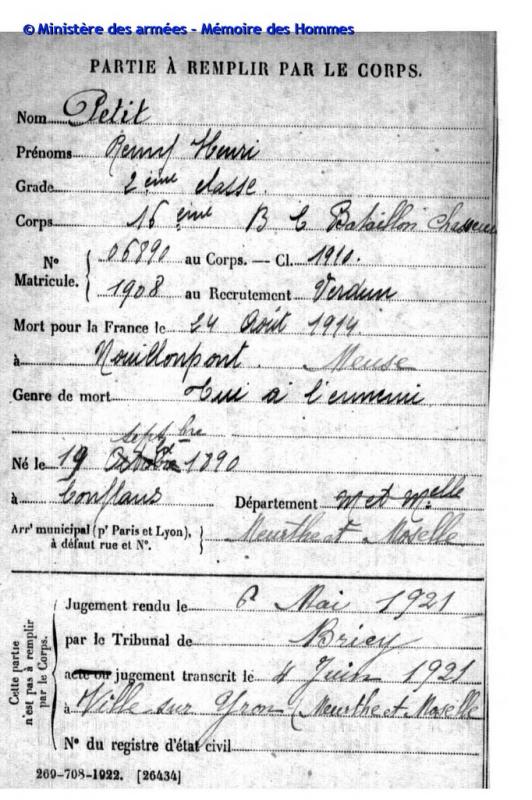 © Ministère des armées - Mémoire des Hommes
PARTIE À REMPLIR PAR LE CORPS.
Nom Petit
Prénoms Remy Henri
Grade 2 ème classe.
Corps 16 ème B C Bataillon Chasseurs
N° Matricule. { 06890 au Corps. — Cl. 1910.
1908 au Recrutement Verdun
Mort pour la France le 24 Août 1914
à Nouillonpont. Meuse
Genre de mort Tué à l'ennemi
septbre
Né le 19 Octobre 1890
à Conflans Département M et Melle
Arrt municipal (pr Paris et Lyon), à défaut rue et N°. } Meurthe et Moselle
Cette partie n'est pas à remplir par le Corps.
Jugement rendu le 6 Mai 1921
par le Tribunal de Briey
acte ou jugement transcrit le 4 Juin 1921
à Ville sur Yron (Meurthe et Moselle
N° du registre d'état civil
269-708-1922. [26434]